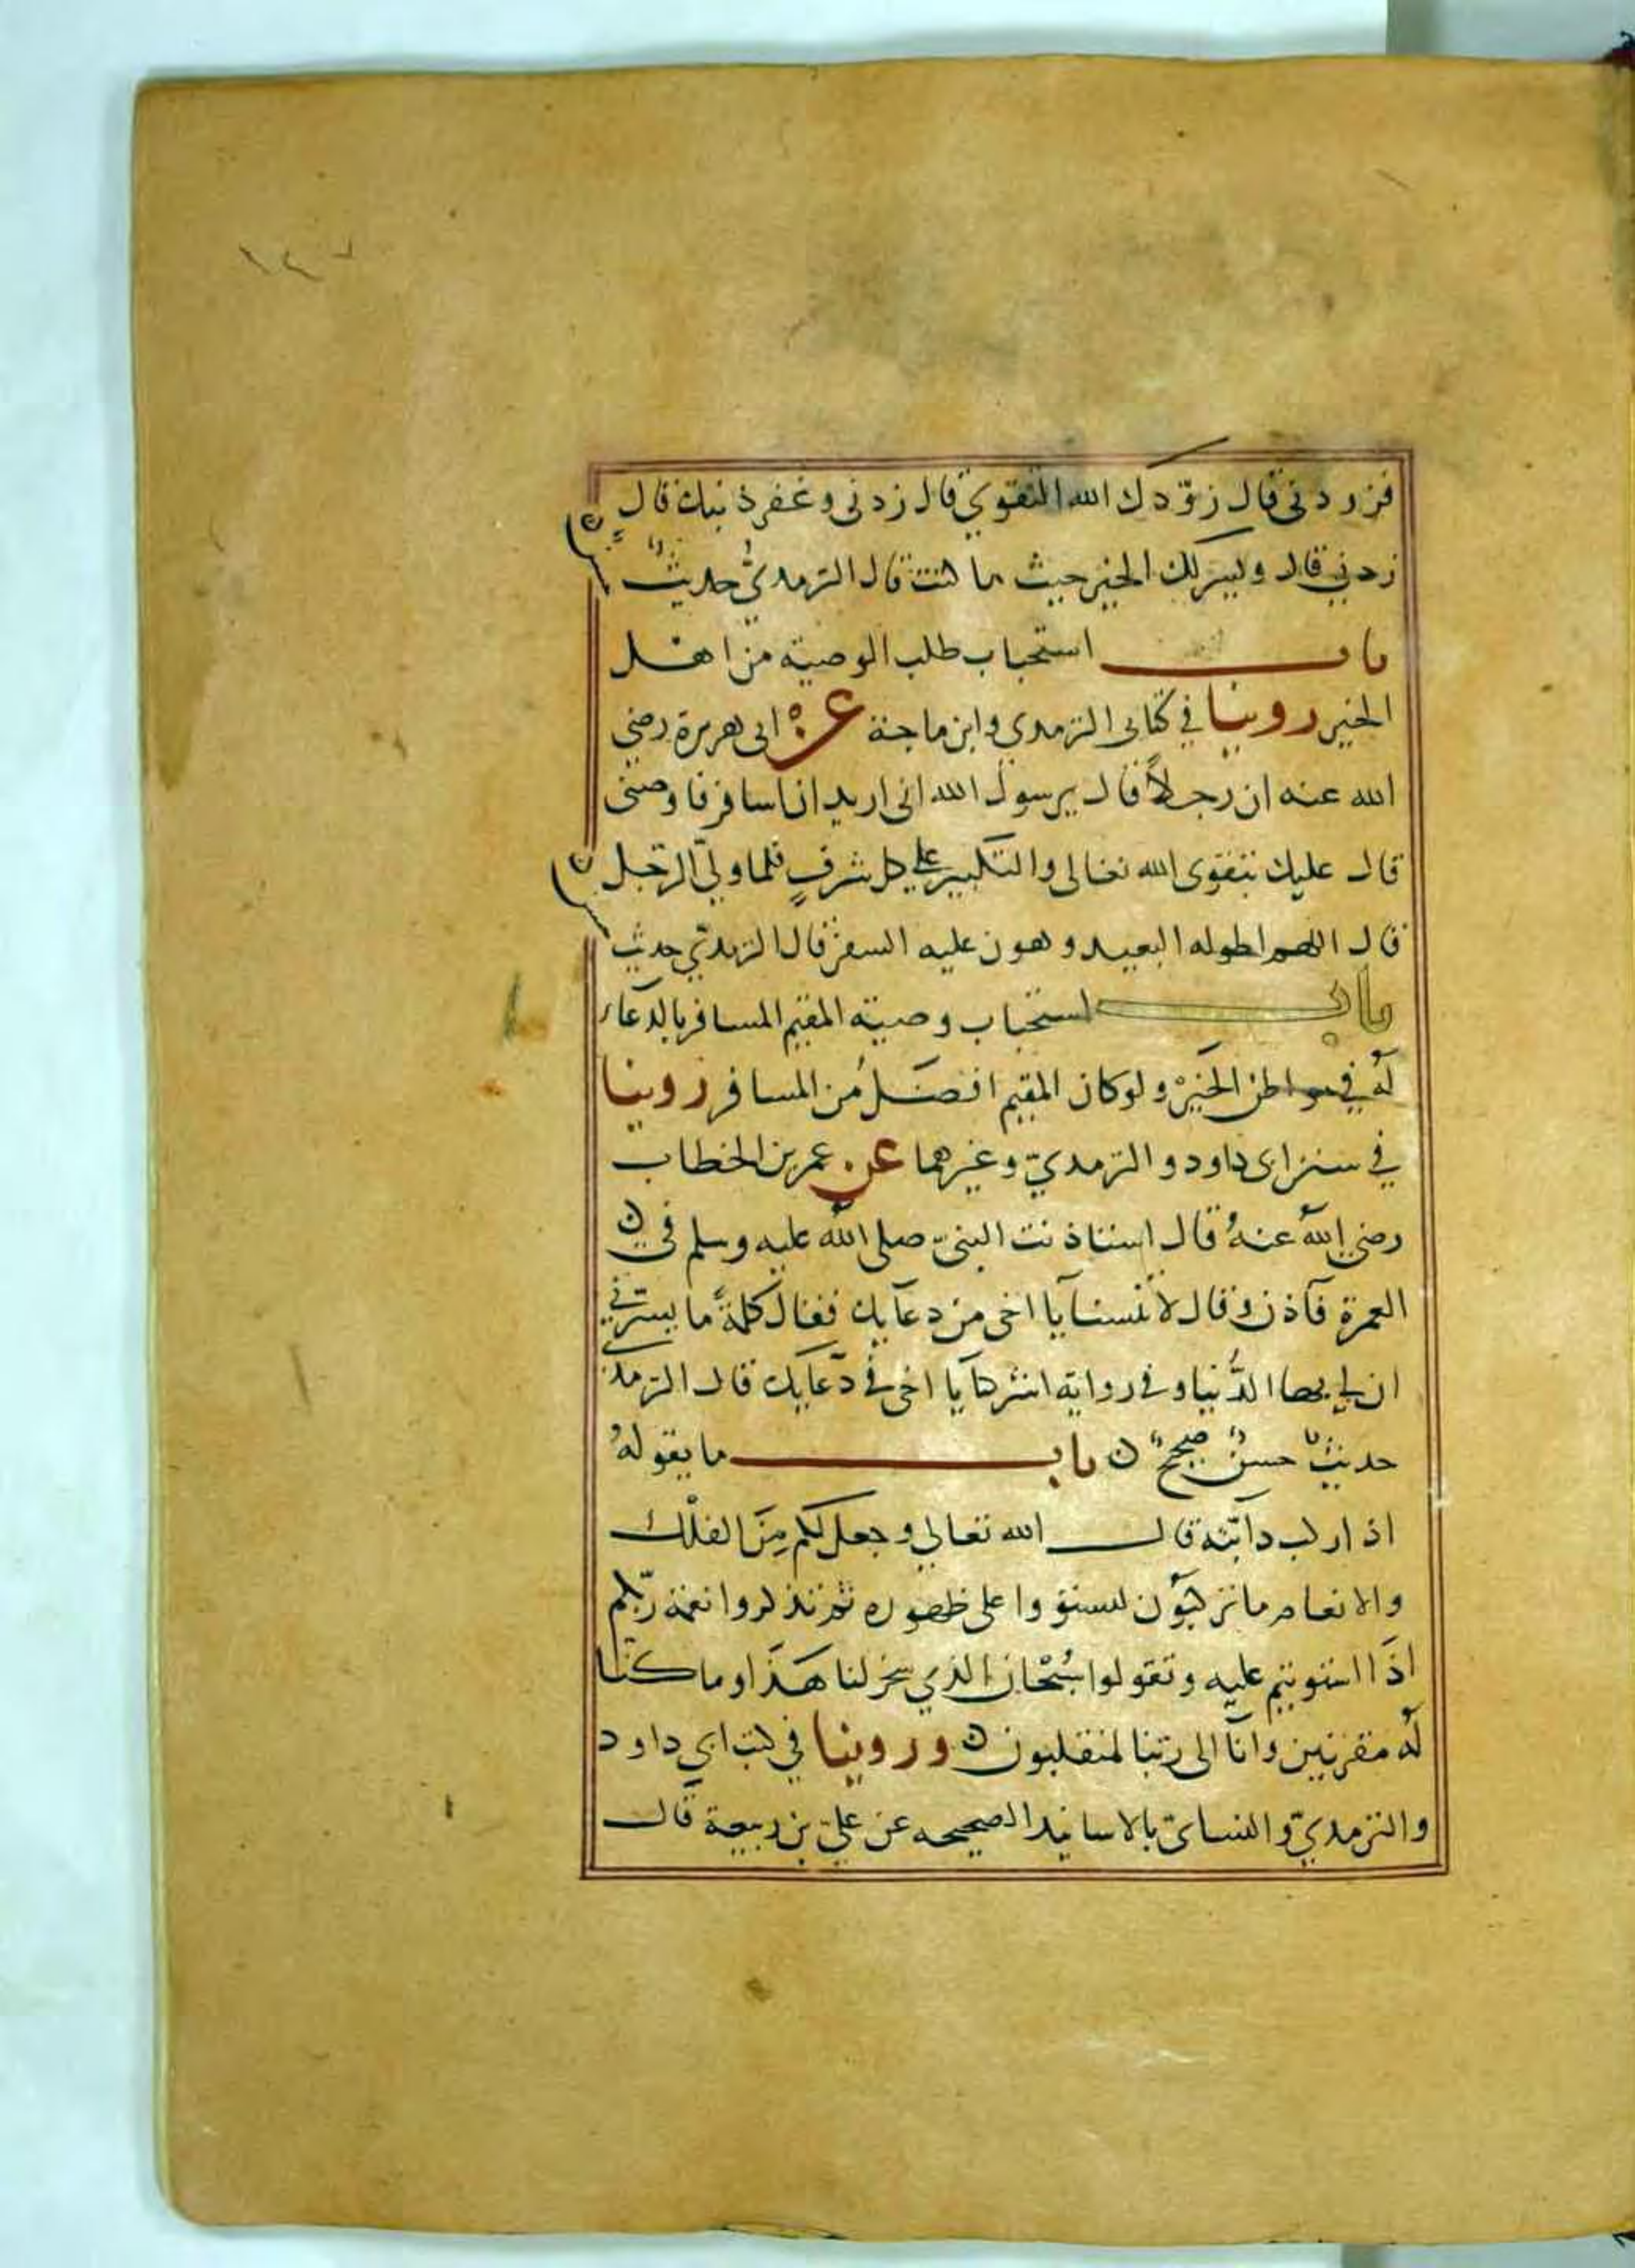 ١٤٧
فزودني قال زوّدك الله التقوي قال زدني وغفر ذنبك قال
زدني قال ويسر لك الخير حيث ما كنت قال الترمديُّ حديثٌ حسنٌ
باب استحباب طلب الوصية من اهل
الخير روينا في كتابى الترمدي وابن ماجة عن ابى هريرة رضي
الله عنه ان رجلاً قال يرسول الله انى اريد ان اسافر فاوصنى
قال عليك بتقوى الله تعالى والتكبير علي كل شرفٍ فلما وليّ الرّجل
قال اللهم اطو له البعيد وهون عليه السفر قال الترمديّ حديث حسن
باب استحباب وصية المقيم المسافر بالدعاء
له في مواطن الخير ولو كان المقيم افضل من المسافر روينا
في سنن ابى داود والترمديّ وغيرهما عن عمر بن الخطاب
رضي الله عنه قال استاذنت النبيّ صلى الله عليه وسلم فى
العمرة فآذن وقال لا تنسنا يا اخى من دعآيك فقال كلمةً ما يسرّني
ان لي بها الدُّنيا وفى رواية اشركنا يا اخى فى دعآيك قال الترمد
حديثٌ حسنٌ صحيحٌ ن باب ما يقوله
اذا ركب دآبّته قال الله تعالي وجعل لكم مِنَ الفلْك
والانعام ما تركبون لتستووا على ظهوره ثم تذكروا نعمة ربّكم
اذَا استويتم عليه وتقولوا سُبْحان الذي سخر لنا هَذَا وما كنّا
له مقرنين وانآ الى ربّنا لمنقلبون ن وروينا في كتب ابى داود
والترمديّ والنساىّ بالاسانيد الصحيحه عن عليّ بن ربيعة قال